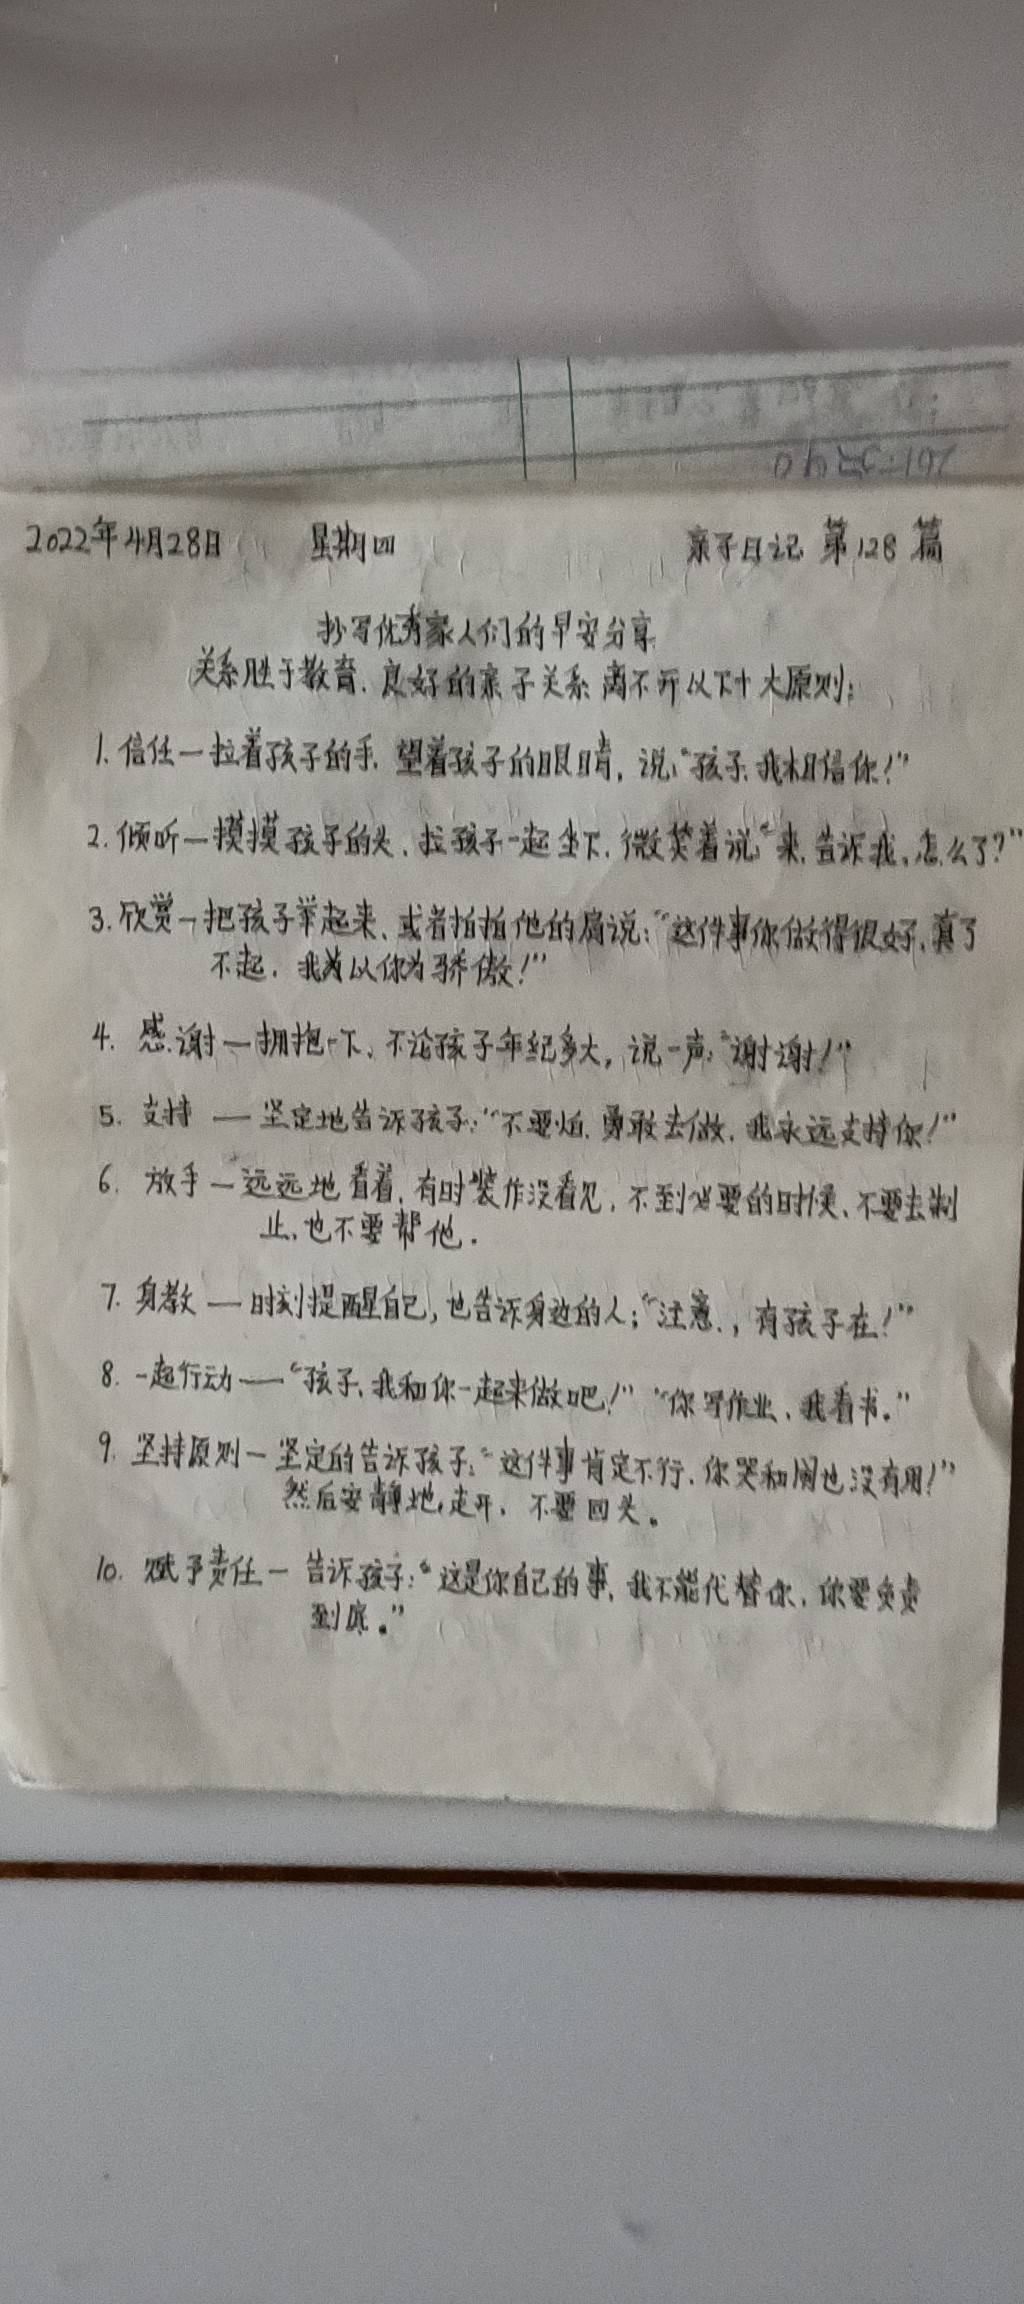 2022年4月28日 星期四 亲子日记 第128篇
抄写优秀家人们的早安分享
关系胜于教育.良好的亲子关系离不开以下十大原则:
1.信任一拉着孩子的手.望着孩子的眼睛,说:“孩子.我相信你!”
2.倾听一摸摸孩子的头、拉孩子一起坐下.微笑着说:“来.告诉我、怎么了?”
3.欣赏一把孩子举起来、或者拍拍他的肩说:“这件事你做得很好、真了
不起.我为以你为骄傲!”
4.感谢一拥抱一下、不论孩子年纪多大,说一声:“谢谢!”
5.支持——坚定地告诉孩子:“不要怕.勇敢去做.我永远支持你!”
6.放手一远远地看着.有时装作没看见,不到必要的时候、不要去制
止、也不要帮他.
7.身教——时刻提醒自己,也告诉身边的人;“注意.,有孩子在!”
8.一起行动——“孩子、我和你一起来做吧!”“你写作业、我看书。”
9.坚持原则一坚定的告诉孩子:“这件事肯定不行.你哭和闹也没有用!”
然后安静地走开.不要回头。
10.赋予责任一告诉孩子:“这是你自己的事.我不能代替你、你要负责
到底。”